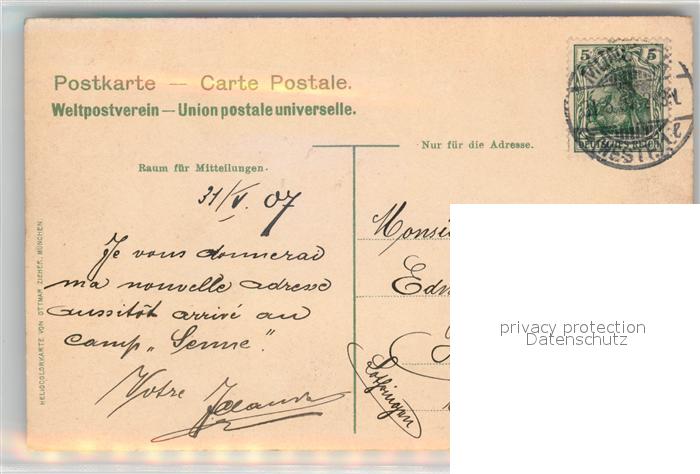 Postkarte — Carte Postale.
Weltpostverein — Union postale universelle.
Nur für die Adresse.
Raum für Mitteilungen.
31/V. 07
Je vous donnerai
ma nouvelle adresse
aussitôt arrivé au
camp „Senne".
Votre
Monsi
Edm
Lothringen
5 5
DEUTSCHES REICH
HELIOCOLORKARTE VON OTTMAR ZIEHER, MÜNCHEN.
privacy protection
Datenschutz